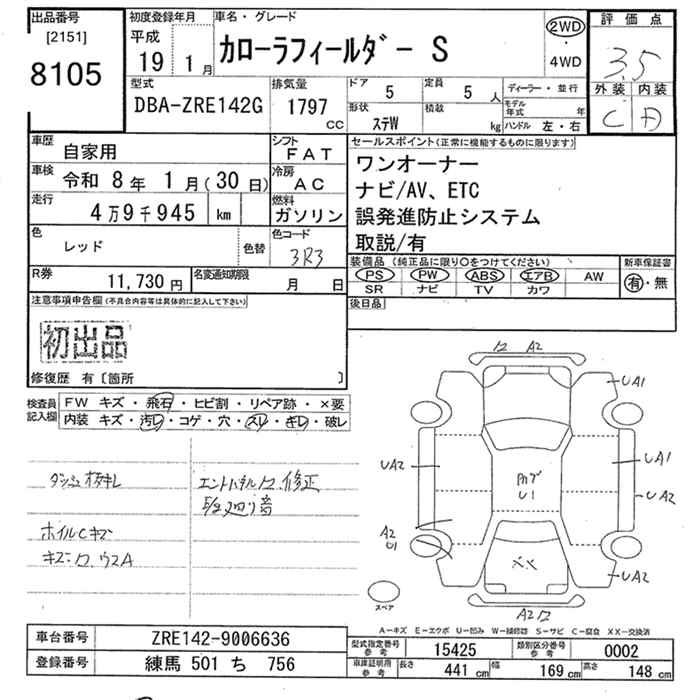 出品番号
[2151]
8105
初度登録年月
平成
19 1月
車名・グレード
カローラフィールダー S
2WD
・
4WD
評価点
3.5
外装 内装
C
型式
DBA-ZRE142G
排気量
1797
CC
ドア
5
定員
5 人
形状
ステW
積載
kg
ディーラー・並行
モデル年式 年
ハンドル 左・右
車歴
自家用
シフト
FAT
車検
令和 8年 1月(30日)
冷房
AC
走行
4万9千945 km
燃料
ガソリン
色
レッド
色替
色コード
3R3
R券
11,730円
名変通知期限
月 日
セールスポイント(正常に機能するものに限ります)
ワンオーナー
ナビ/AV、ETC
誤発進防止システム
取説/有
装備品 (純正品に限り○をつけてください)
新車保証書
PS PW ABS エアB AW
SR ナビ TV カワ
有・無
後日品
注意事項申告欄(不具合内容等は具体的に記入して下さい)
初出品
修復歴 有〔箇所 〕
検査員
記入欄
FW キズ・飛石・ヒビ割・リペア跡・×要
内装 キズ・汚レ・コゲ・穴・スレ・キレ・破レ
ホイルCキズ
修正
A2
UA1
UA2
UA1
UA2
A2
U1
U1
XX
UA2
A2
スペア
A-キズ E-エクボ U-凹み W-補修跡 S-サビ C-腐食 XX-交換済
車台番号
ZRE142-9006636
登録番号
練馬 501 ち 756
型式指定番号
参考
15425
類別区分番号
参考
0002
車庫証明用
参考
長さ 441 cm 幅 169 cm 高さ 148 cm